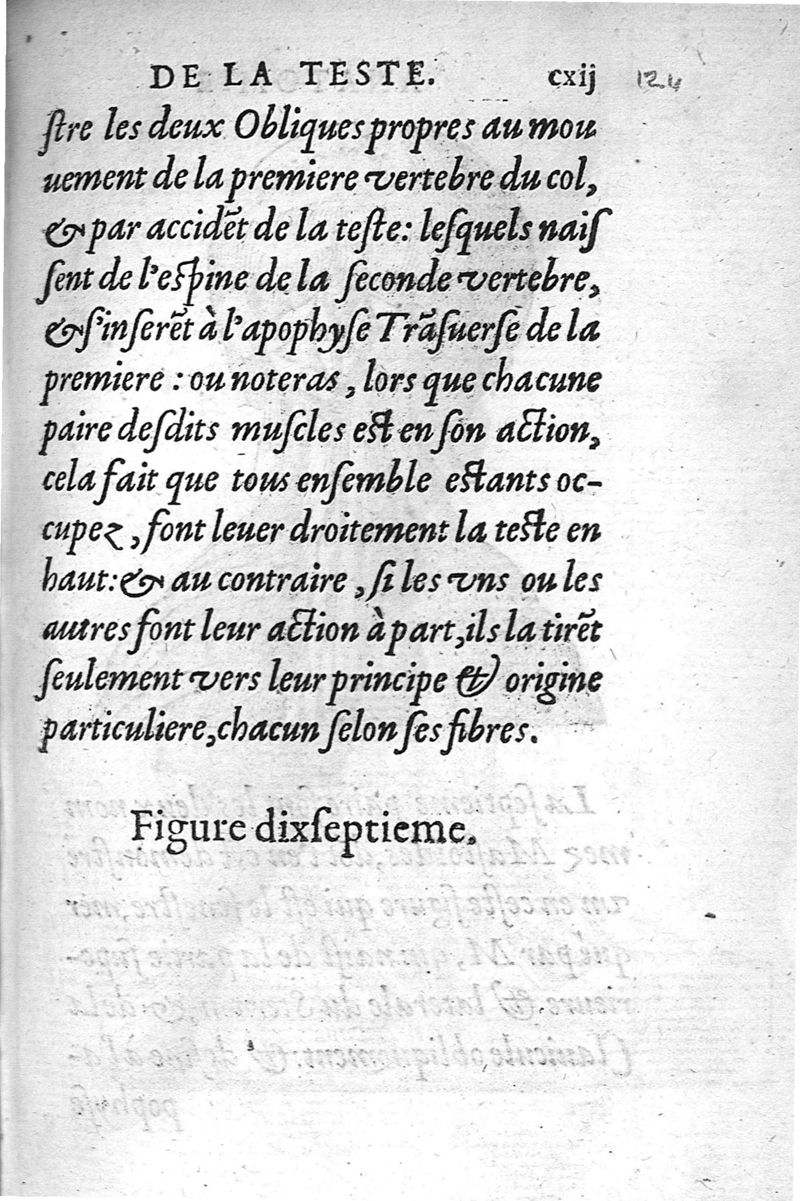 DE LA TESTE. cxij 124
ſtre les deux Obliques propres au mou
uement de la premiere vertebre du col,
& par accidẽt de la teſte: leſquels naiſ
ſent de l'eſpine de la ſeconde vertebre,
& s'inſerẽt à l'apophyſe Trãſuerſe de la
premiere : ou noteras, lors que chacune
paire deſdits muſcles eſt en ſon action,
cela fait que tous enſemble eſtants oc-
cupez, font leuer droitement la teſte en
haut: & au contraire, ſi les vns ou les
autres font leur action à part, ils la tirẽt
ſeulement vers leur principe & origine
particuliere, chacun ſelon ſes fibres.
Figure dixſeptieme.